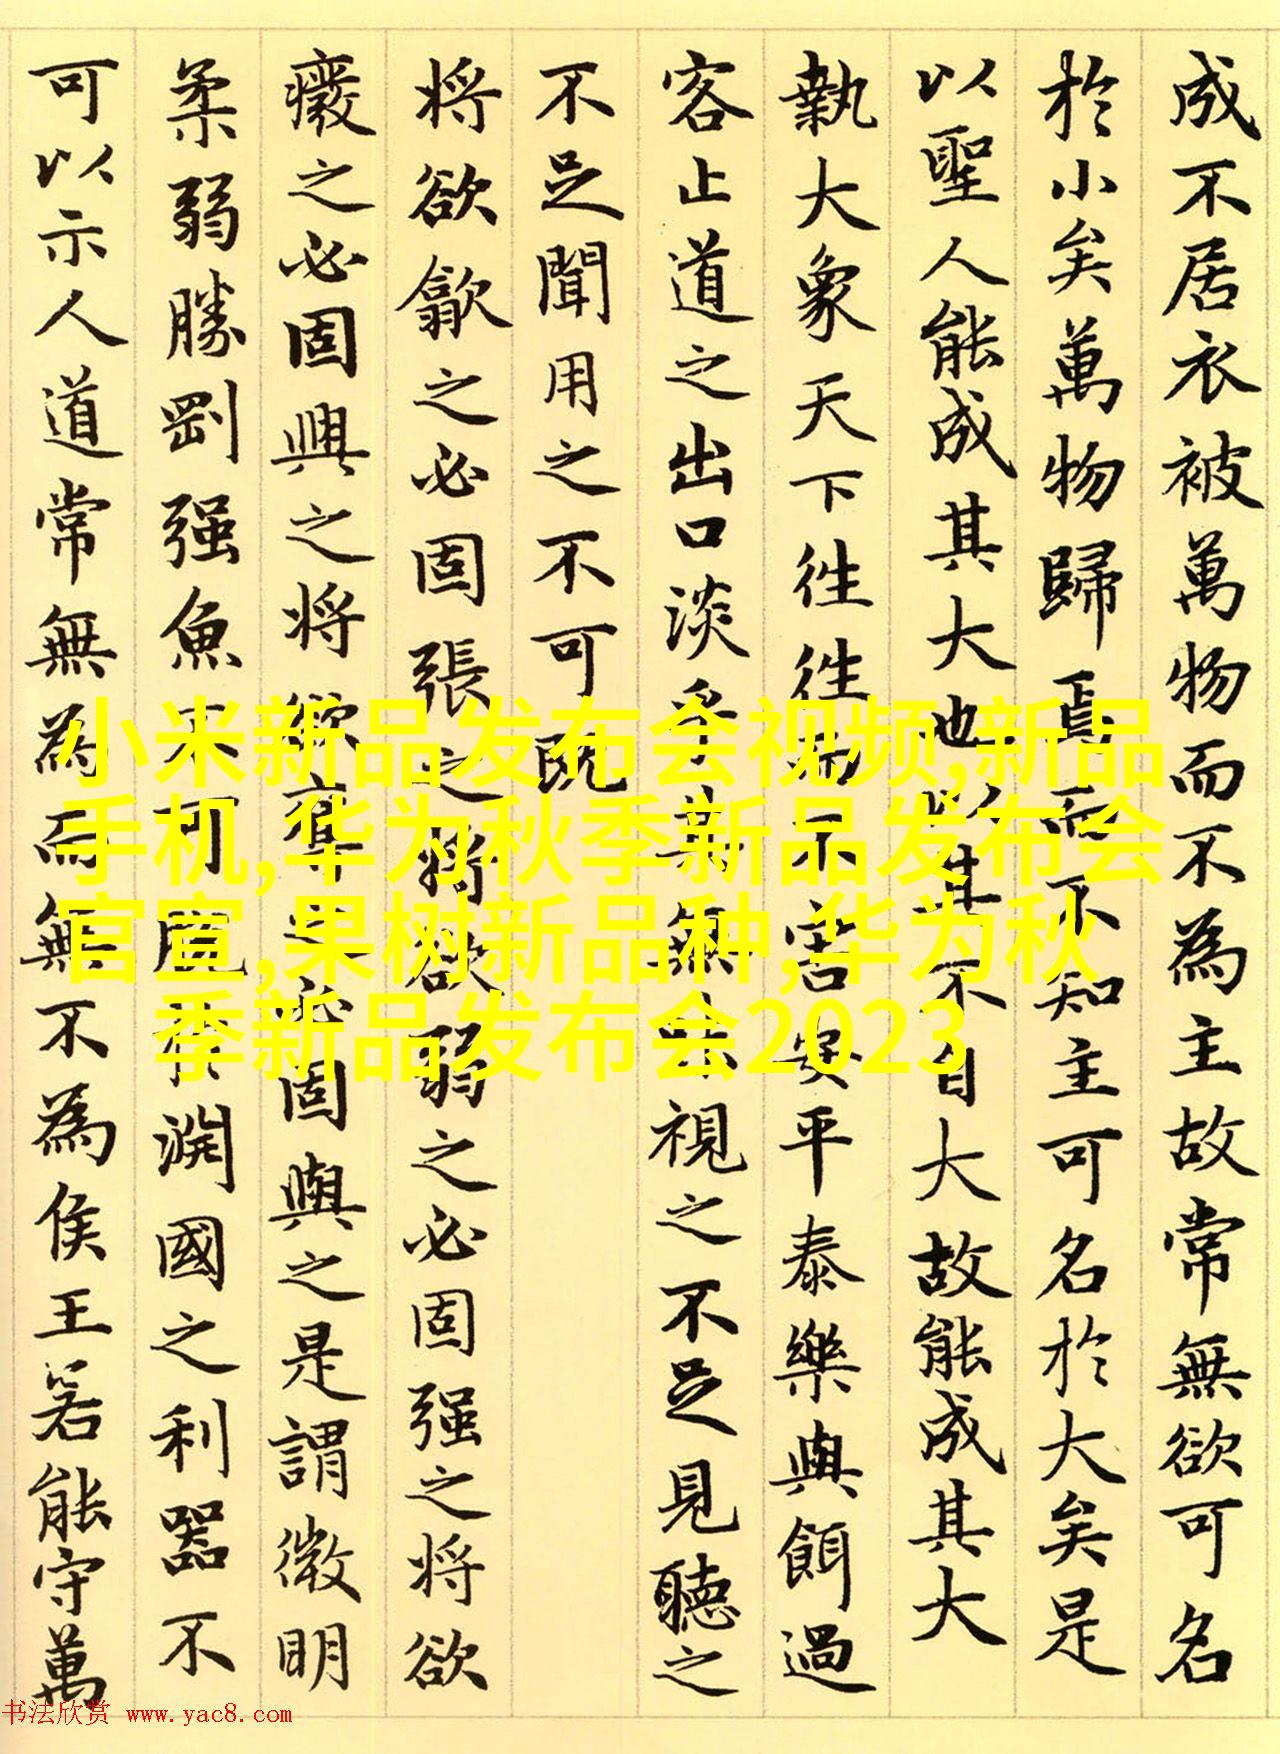 成不居衣被萬物而不為主故常無欲可名
於小矣萬物歸焉而不知主可名於大矣是
以聖人能成其大也以其不自大故能成其大
執大象天下往往而不害安平泰樂與餌過
客止道之出口淡乎其無味視之不足見聽之
不足聞用之不可既
将欲歙之必固張之将欲弱之必固强之将欲
癈之必固興之将欲奪之必固與之是謂微明
柔弱勝剛强魚不可脫於淵國之利器不
可以示人道常無為而無不為侯王若能守萬
小米新品发布会视频,新品
手机,华为秋季新品发布会
官宣,果树新品种,华为秋
季新品发布会2023
书法欣赏 www.yac8.com